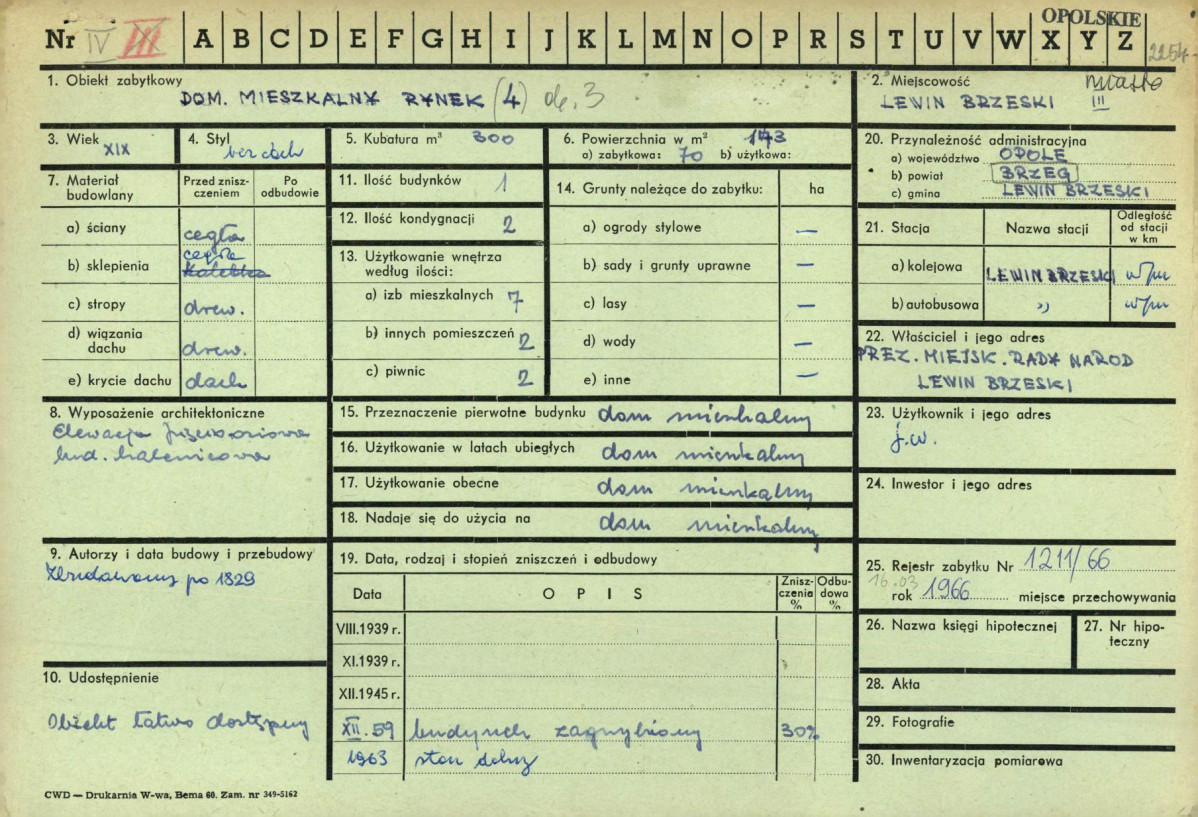 OPOLSKIE
Nr IV III A B C D E F G H I J K L M N O P R S T U V W X Y Z
2254
1. Obiekt zabytkowy
DOM. MIESZKALNY RYNEK (4) ob. 3
2. Miejscowość miasto
LEWIN BRZESKI III
3. Wiek XIX
4. Styl bez cech
5. Kubatura m³ 300
6. Powierzchnia w m² 143
a) zabytkowa: 70 b) użytkowa:
20. Przynależność administracyjna
a) województwo OPOLE
b) powiat BRZEG
c) gmina LEWIN BRZESKI
7. Materiał budowlany
Przed zniszczeniem
Po odbudowie
a) ściany cegła
b) sklepienia cegła
c) stropy drew.
d) wiązania dachu drew.
e) krycie dachu dach
11. Ilość budynków 1
12. Ilość kondygnacji 2
13. Użytkowanie wnętrza
według ilości:
a) izb mieszkalnych 7
b) innych pomieszczeń 2
c) piwnic 2
14. Grunty należące do zabytku: ha
a) ogrody stylowe —
b) sady i grunty uprawne —
c) lasy —
d) wody —
e) inne —
21. Stacja Nazwa stacji Odległość od stacji w km
a) kolejowa LEWIN BRZESKI w/m
b) autobusowa ,, w/m
22. Właściciel i jego adres
PREZ. MIEJSK. RADY NAROD
LEWIN BRZESKI
8. Wyposażenie architektoniczne
Elewacja
bud. kalenicowa
15. Przeznaczenie pierwotne budynku dom mieszkalny
16. Użytkowanie w latach ubiegłych dom mieszkalny
17. Użytkowanie obecne dom mieszkalny
18. Nadaje się do użycia na dom mieszkalny
23. Użytkownik i jego adres
j.w.
24. Inwestor i jego adres
9. Autorzy i data budowy i przebudowy
Zbudowany po 1829
19. Data, rodzaj i stopień zniszczeń i odbudowy
Data O P I S Zniszczenia % Odbudowa %
VIII.1939 r.
XI.1939 r.
XII.1945 r.
XII.59 budynek zagrzybiony 30%
1963 stan dobry
25. Rejestr zabytku Nr 1211/66
16.03
rok 1966 miejsce przechowywania
26. Nazwa księgi hipotecznej
27. Nr hipoteczny
28. Akta
29. Fotografie
30. Inwentaryzacja pomiarowa
10. Udostępnienie
Obiekt łatwo dostępny
CWD — Drukarnia W-wa, Bema 60. Zam. nr 349-5162